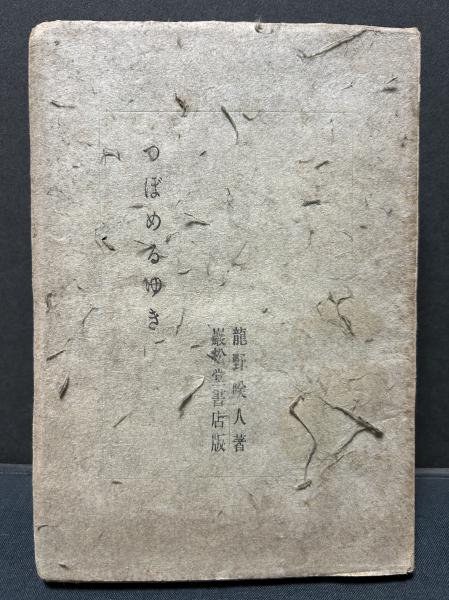 つぼめるゆき
龍野咲人著
巖松堂書店版